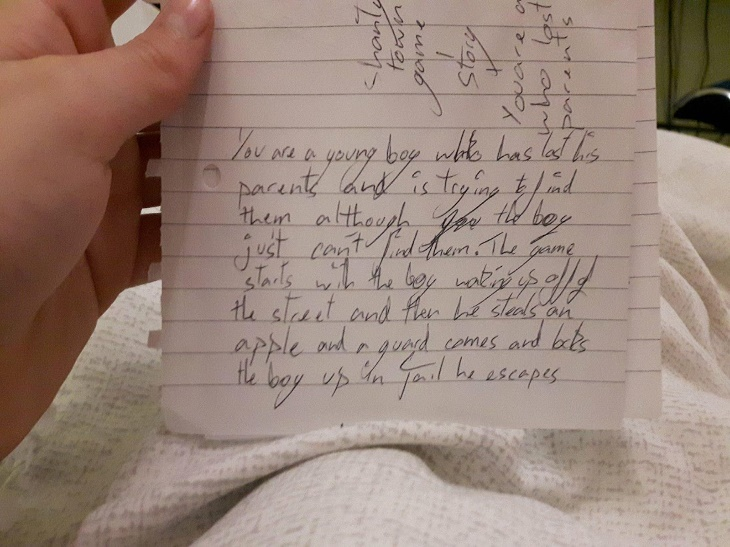 shanty
town
game
Story
You are a
who lost
parents
You are a young boy who has lost his
parents and is trying to find
them although the boy
just can't find them. The game
starts with the boy waking up off of
the street and then he steals an
apple and a guard comes and locks
the boy up in Jail he escapes